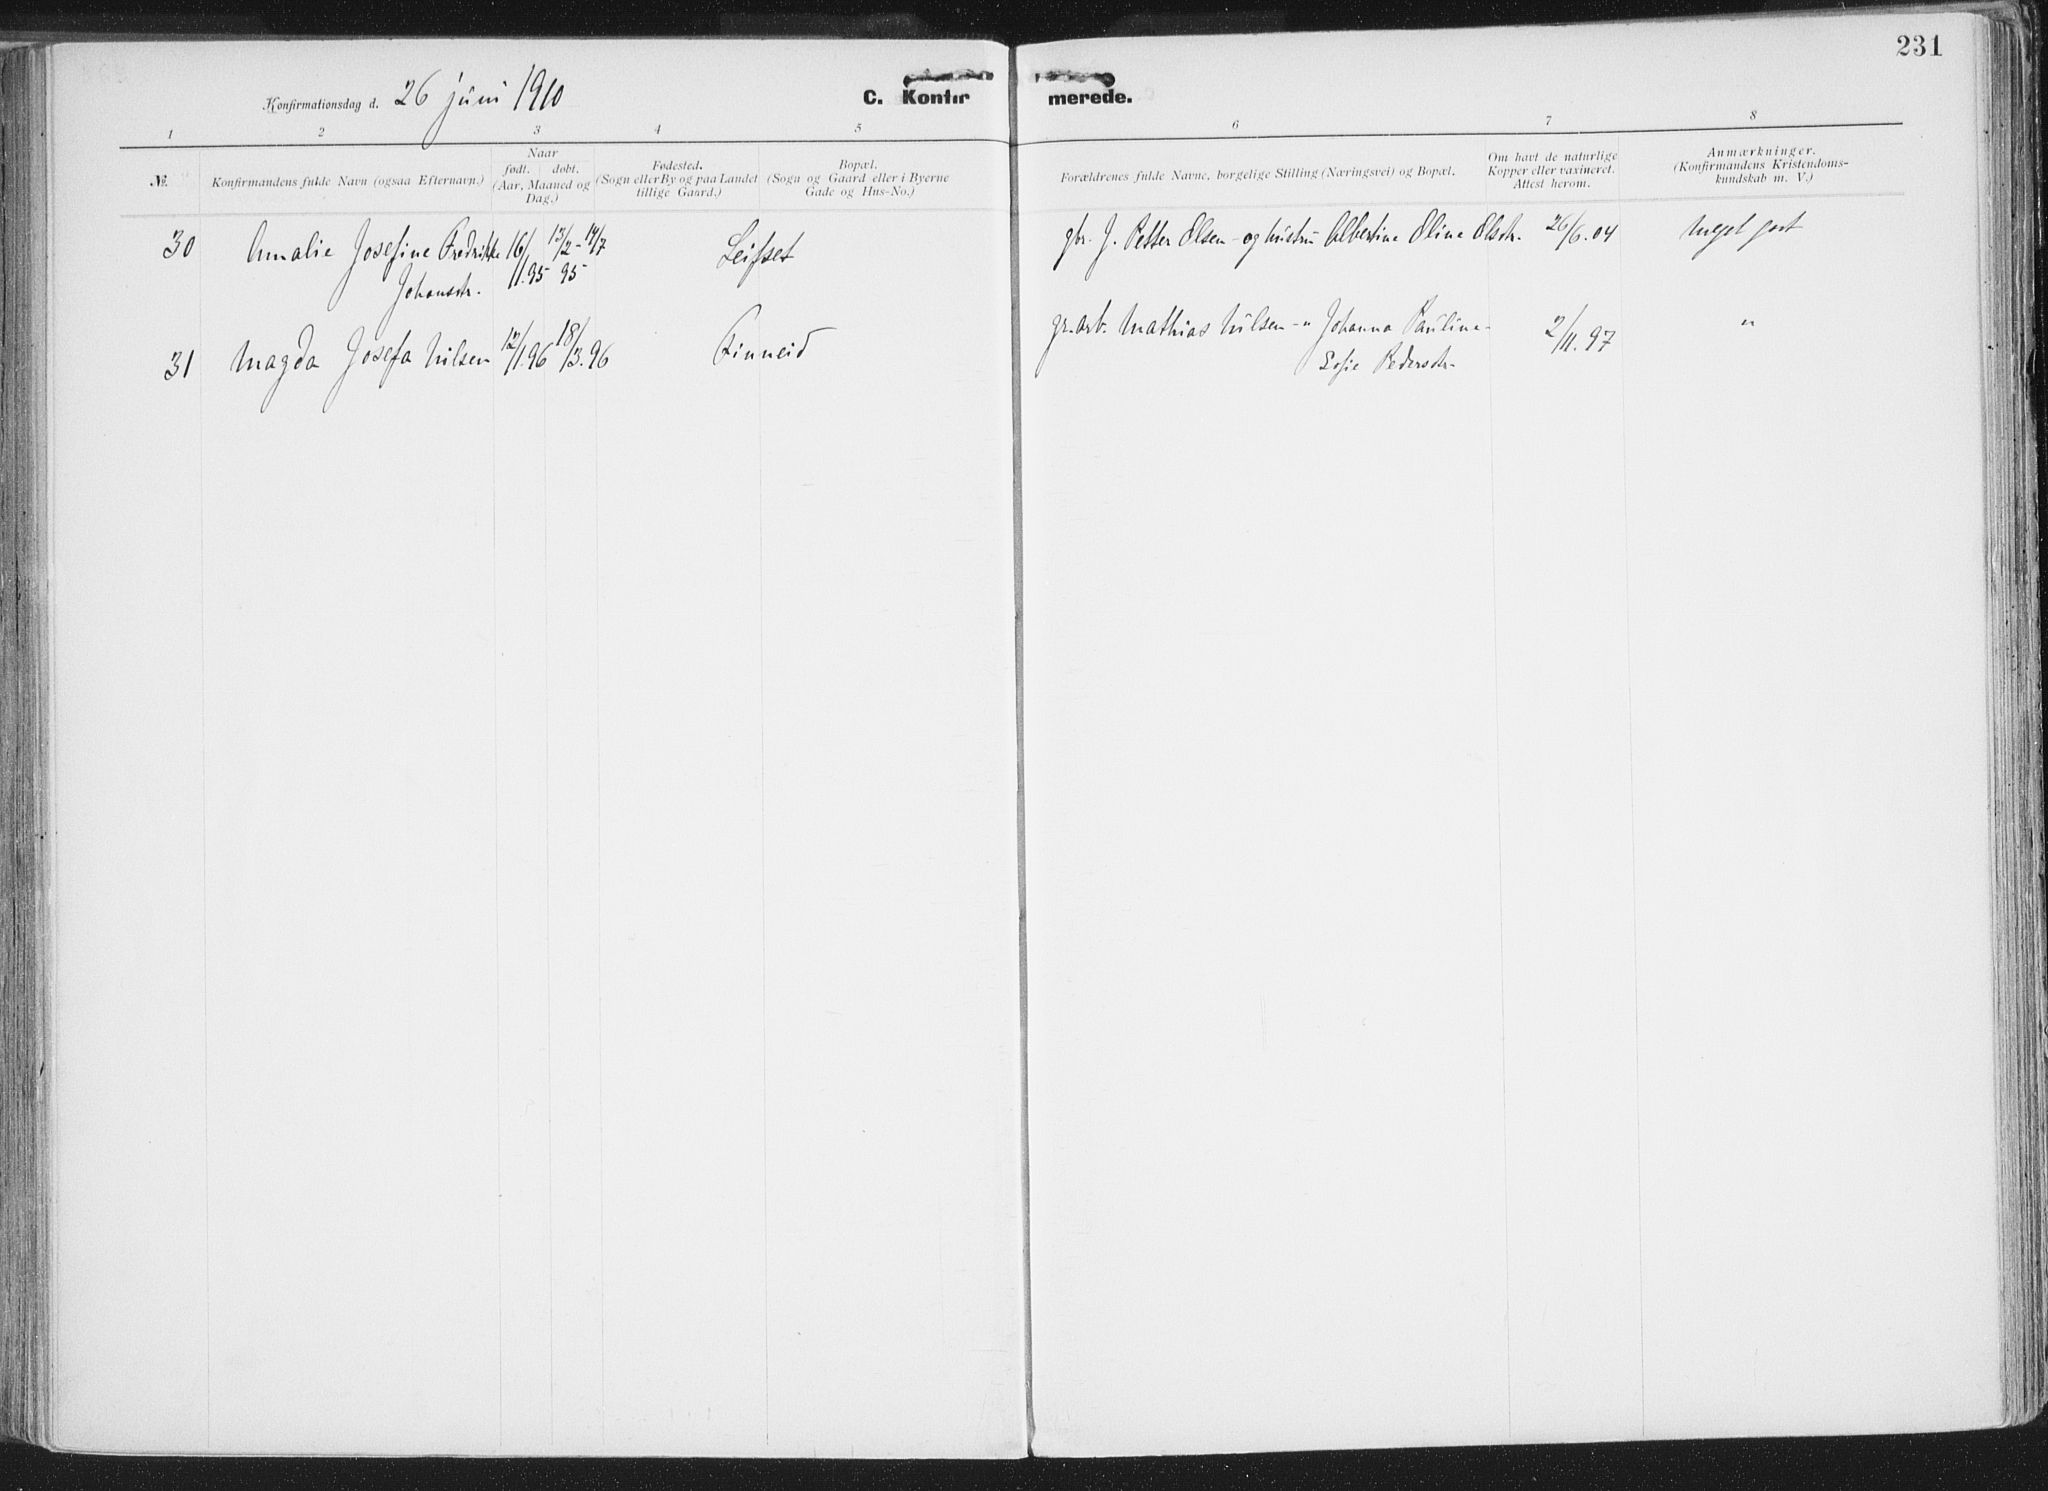 231
Konfirmationsdag d. 26 juni 1910
C. Konfirmerede.
1 2 3 4 5 6 7 8
№
Konfirmandens fulde Navn (ogsaa Efternavn.)
Naar
født. døbt.
(Aar, Maaned og
Dag.)
Fødested.
(Sogn eller By og paa Landet
tillige Gaard.)
Bopæl.
(Sogn og Gaard eller i Byerne
Gade og Hus-No.)
Forældrenes fulde Navne, borgelige Stilling (Næringsvei) og Bopæl.
Om havt de naturlige
Kopper eller vaxineret.
Attest herom.
Anmærkninger.
(Konfirmandens Kristendoms-
kundskab m. V.)
30 Amalie Josefine Fredrikke 16/1.95 13/2-14/7 95 Leifset gbr. J. Petter Olsen - og hustru Albertine Oline Olsdtr. 26/6.04 Meget godt
Johansdtr.
31 Magda Josefa Nilsen 12/1.96 18/3.96 Finneid gr.arb. Mathias Nilsen - " Johanna Pauline- 2/11.97 "
Sofie Pedersdtr.